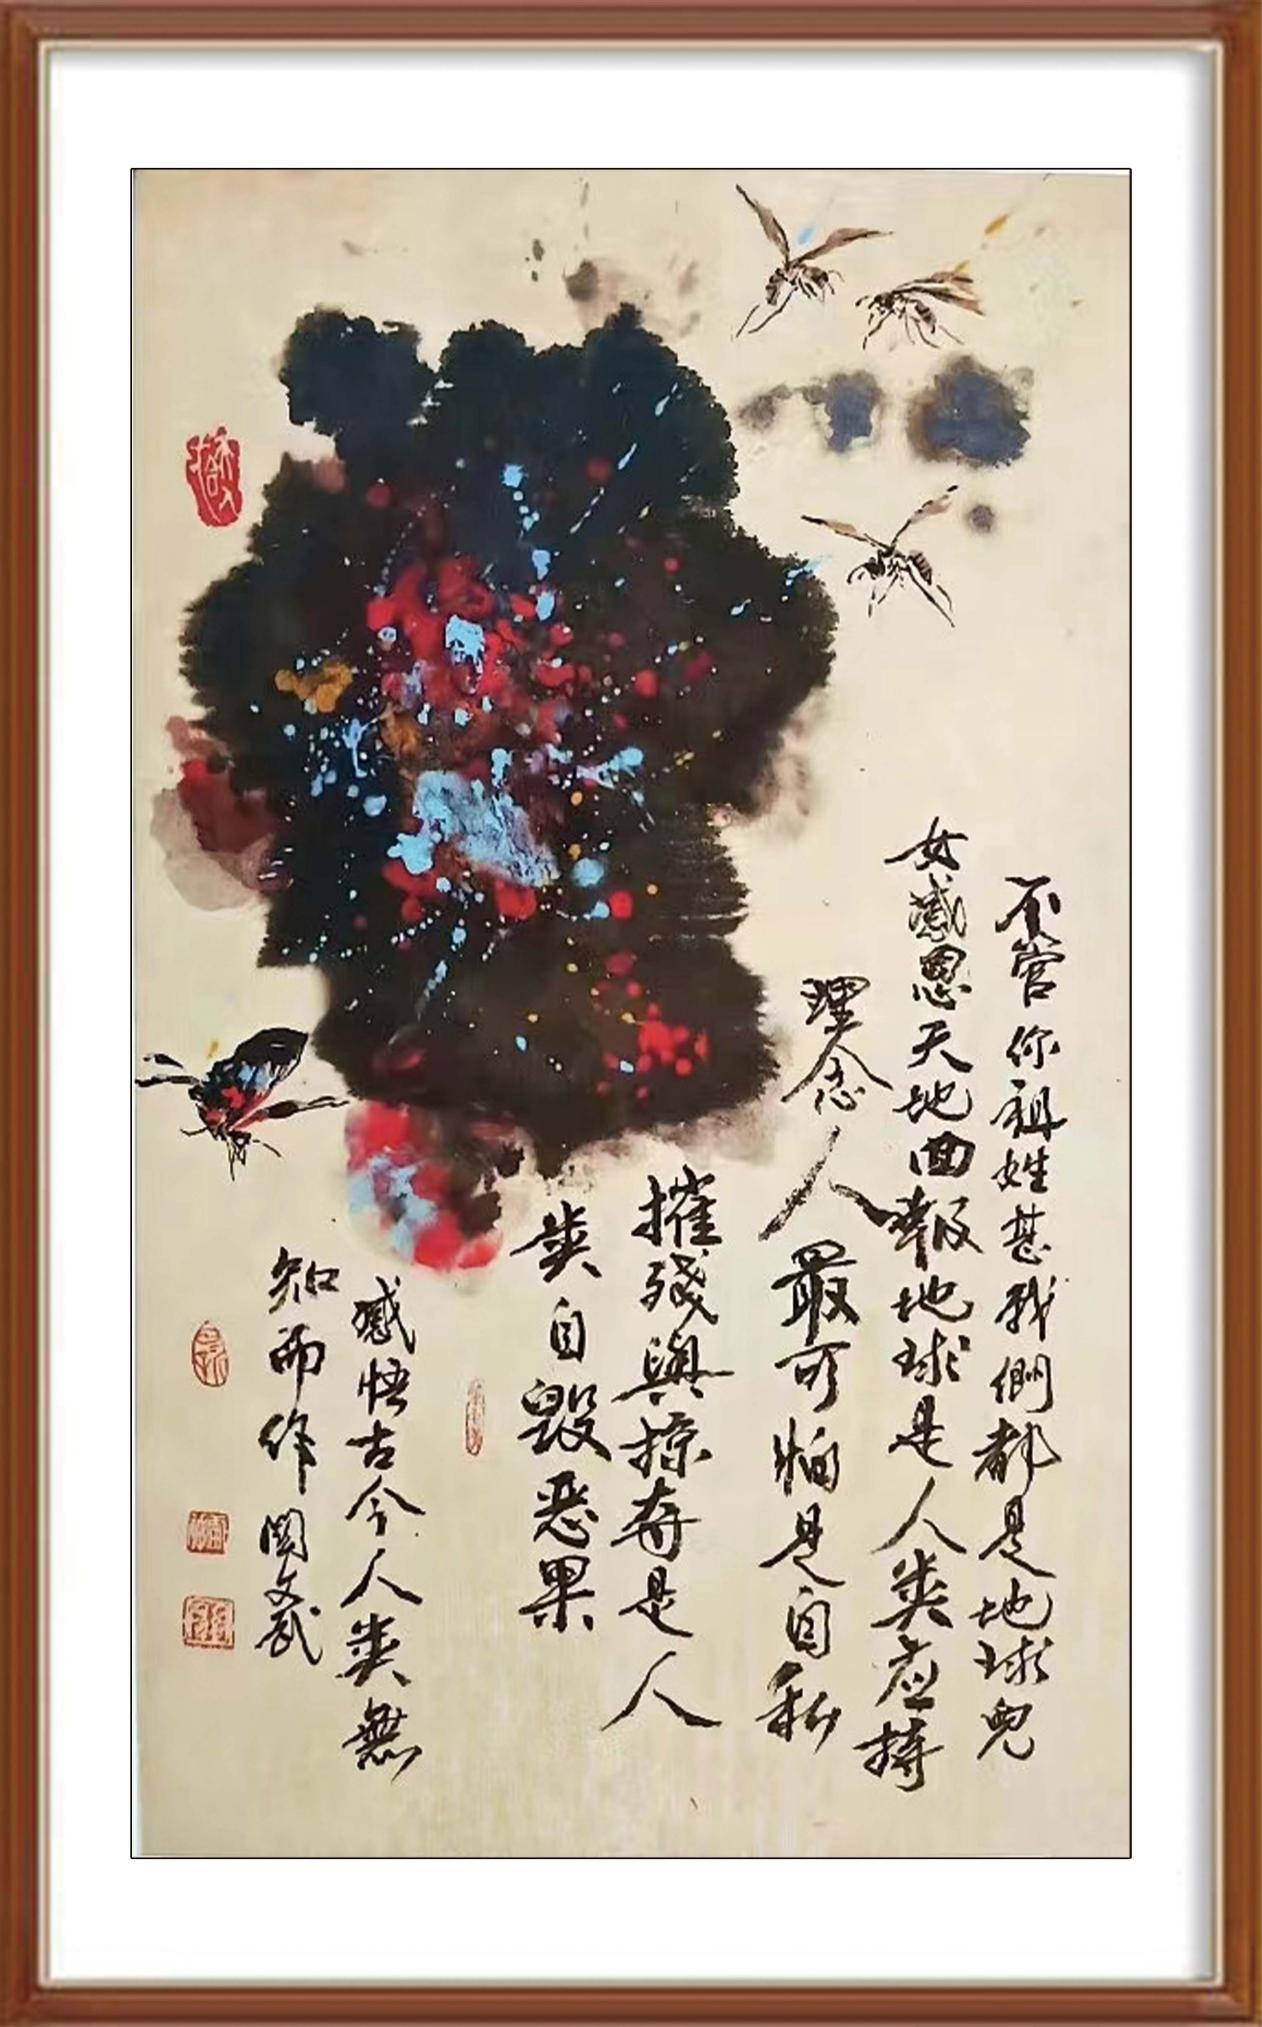 不管你祖姓甚我們都是地球兒
女感恩天地回報地球是人类应持
理念人最可怕是自私
摧残與掠夺是人
类自毁恶果
感悟古今人类無
知而作関文武